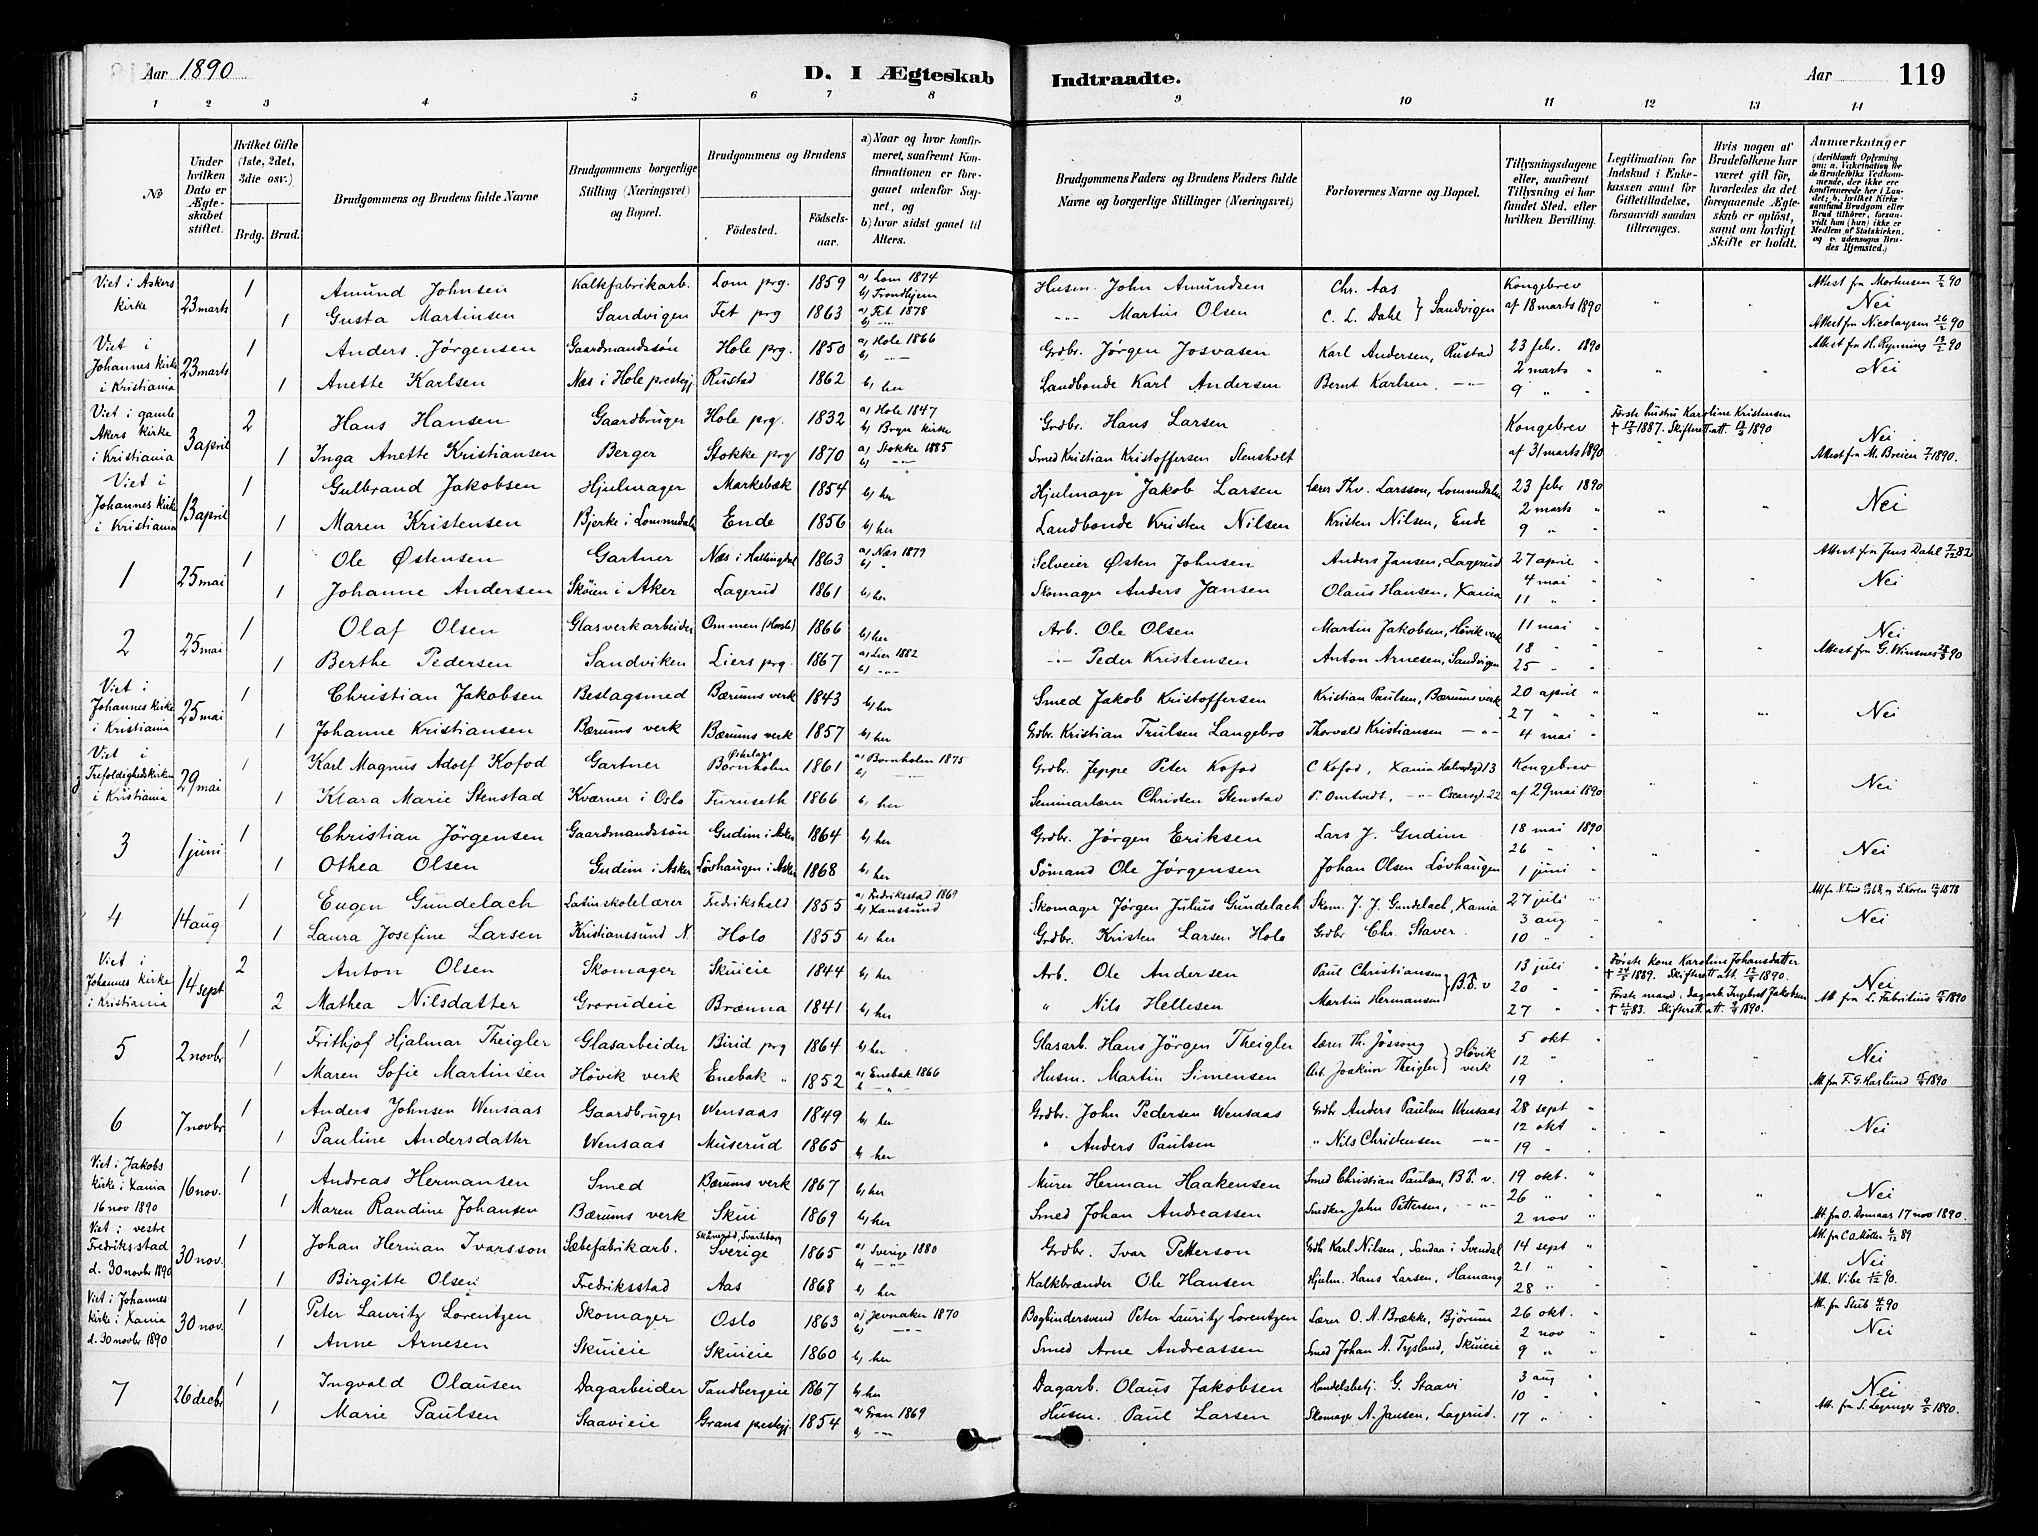 Aar 1890
D. I Ægteskab Indtraadte.
Aar
119
1 2 3 4 5 6 7 8 9 10 11 12 13 14
No
Under hvilken Dato er Ægteskabet stiftet.
Hvilket Gifte (1ste, 2det, 3die osv.)
Brdg. Brud.
Brudgommens og Brudens fulde Navne
Brudgommens borgerlige Stilling (Næringsvei) og Bopæl.
Brudgommens og Brudens
Födested.
Födsels-aar.
a) Naar og hvor konfirmeret, saafremt Konfirmationen er foregaaet udenfor Sognet, og
b) hvor sidst gaaet til Alters.
Brudgommens Faders og Brudens Faders fulde Navne og borgerlige Stillinger (Næringsvei)
Forlovernes Navne og Bopæl.
Tillysningsdagene eller, saafremt Tillysning ei har fundet Sted, efter hvilken Bevilling.
Legitimation for Indskud i Enkekassen samt for Giftetilladelse, forsaavidt saadan tiltrænges.
Hvis nogen af Brudefolkene har været gift för, hvorledes da det foregaaende Ægteskab er oplöst, samt om lovligt Skifte er holdt.
Anmærkninger
(deriblandt Oplysning om: a. Vakcination for de Brudefolks Vedkommende, der ikke ere konfirmerede her i Landet; b. hvilket Kirkesamfund Brudgom eller Brud tilhörer, forsaavidt han (hun) ikke er Medlem af Statskirken, og c. udensogns Brudes Hjemsted.)
Viet i Askers kirke 23 marts 1 Amund Johnsen Kalkfabrikarb. Lom prg. 1859 a) Lom 1874 b) Trondhjem Husm. John Amundsen Chr. Aas Kongebrev Attest fra Mortensen 7/2 90
1 Gusta Martinsen Sandvigen Fet prg 1863 a) Fet 1878 b) -"- -"- Martin Olsen C. L. Dahl } Sandvigen af 18 marts 1890 " " Nei
Attest fra Nicolaysen 26/2 90
Viet i Johannes kirke i Kristiania 23 marts 1 Anders Jørgensen Gaardmandssøn Hole prg. 1850 a) Hole 1866 b) -"- Grdbr. Jørgen Josvasen Karl Andersen, Rustad 23 febr. 1890 Attest fra H. Rynning 13/2 90
2 marts " Nei
1 Anette Karlsen Næs i Hole prestegj Rustad 1862 b) her Landbonde Karl Andersen Bernt Karlsen, -"- 9 " "
Viet i gamle Akers kirke i Kristiania 3 april 2 Hans Hansen Gaardbruger Hole prg. 1832 a) Hole 1847 b) Bryn kirke Grdbr. Hans Larsen Kongebrev Første hustru Karoline Kristensen † 17/5 1887. Skifterett att. 17/3 1890 Nei
1 Inga Anette Kristiansen Berger Stokke prg 1870 a) Stokke 1885 b) -"- Smed Kristian Kristoffersen Stensholt af 31 marts 1890 Attest fra M. Breien 7/1 1890.
Viet i Johannes kirke i Kristiania 13 april 1 Gulbrand Jakobsen Hjulmager Markebæk 1854 b) her Hjulmager Jakob Larsen Lærer Thv. Larsson, Lommedalen 23 febr 1890
2 marts " Nei
1 Maren Kristensen Bjerke i Lommedalen Ende 1856 b) her Landbonde Kristen Nilsen Kristen Nilsen, Ende 9 " "
1 25 mai 1 Ole Østensen Gartner Næs i Hallingdal 1863 a) Næs 1879 b) " Selveier Østen Johnsen Anders Jansen, Lagerud 27 april " Attest fra Jens Dahl 7/12 82
4 mai " Nei
1 Johanne Andersen Skøien i Aker Lagerud 1861 b) her Skomager Anders Jansen Olaus Hansen, Xania 11 " "
2 25 mai 1 Olaf Olsen Glasverkarbeider Ommen (Harstd) 1866 b) her Arb. Ole Olsen Martin Jakobsen, Høvik verk 11 mai " Nei
18 " "
1 Berthe Pedersen Sandviken Liers prg. 1867 a) Lier 1882 b) -"- -"- Peder Kristensen Anton Arnesen, Sandvigen 25 " " Attest fra G. Winsnes 28/3 90
Viet i Johannes kirke i Kristiania 25 mai 1 Christian Jakobsen Beslagsmed Bærums verk 1843 b) her Smed Jakob Kristoffersen Kristian Paulsen, Bærums verk 20 april "
27 " " Nei
1 Johanne Kristiansen Bærums verk Bærums verk 1857 b) her Grdbr. Kristian Trulsen Langebro Thorvald Kristiansen -"- 4 mai "
Viet i Trefoldighedskirken i Kristiania 29 mai 1 Karl Magnus Adolf Kofod Gartner Østerlars Bornholm 1861 a) Bornholm 1875 b) -"- Grdbr. Jeppe Peter Kofod C Kofod, Xania 13 Kongebrev Nei
1 Klara Marie Stenstad Kværner i Oslo Furuseth 1866 b) her Seminarlærer Christen Stenstad P. Omtvedt, -"- Oscarsgd. 22 af 29 mai 1890
3 1 juni 1 Christian Jørgensen Gaardmandssøn Gudim i Asker 1864 b) her Grdbr. Jørgen Eriksen Lars J. Gudim 18 mai 1890
26 " " Nei
1 Othea Olsen Gudim i Asker Løvhaugen i Asker 1868 b) her Sømand Ole Jørgensen Johan Olsen Løvhaugen 1 juni "
4 14 aug 1 Eugen Gundelach Latinskolelærer Fredrikshald 1855 a) Fredriksstad 1869 b) Xanssund Skomager Jørgen Julius Gundelach Skom. J. J. Gundelach, Xania 27 juli "
3 aug " Nei
1 Laura Josefine Larsen Kristianssund N. Holo 1855 b) her Grdbr. Kristen Larsen Holo Grdbr Chr. Staver 10 " "
Viet i Johannes kirke i Kristiania 14 sept 2 Anton Olsen Skomager Skuieie 1844 b) her Arb. Ole Andersen Paul Christiansen 13 juli " Første kone Karoline Johansdatter † 24/2 1889. Skifterett att. 12/4 1890. Nei
20 " "
2 Mathea Nilsdatter Grorudeie Brænna 1841 b) her " Nils Hellesen Martin Hermansen } B.V. v 27 " " Første mand, dagarb. Ingebret Jakobsen † 83. Skifterett att. 1890. Att fra L. Fabritius 1890
5 2 novbr 1 Frithjof Hjalmar Theigler Glasarbeider Birid prg 1864 b) her Glasarb. Hans Jörgen Theigler Lærer Th. Jøssong 5 okt "
12 " " Nei
1 Maren Sofie Martinsen Høvik verk Enebak " 1852 a) Enebak 1866 b) -"- Husm. Martin Simensen Arb. Joakim Theigler } Høvik verk 19 " " Att fra F. G. Harlund 1890
6 7 novbr 1 Anders Johnsen Wensaas Gaardbruger Wensaas 1849 b) her Grdbr. John Pedersen Wensaas Grdbr Anders Paulsen Wensaas 28 sept "
12 okt " Nei
1 Pauline Andersdatter Wensaas Muserud 1865 b) her " Anders Paulsen " Nils Christensen -"- 19 " "
Viet i Jakobs kirke i Xania 16 nov 1890 16 nov. 1 Andreas Hermansen Smed Bærums verk 1867 b) her Murer Herman Haakensen Smed Christian Paulsen, B.V. v. 19 okt. "
26 " " Nei
1 Maren Randine Johansen Bærums verk Skui 1869 b) her Smed Johan Andreassen Snedker John Pettersen, -"- 2 nov " Att. fra O. Domaas 17 nov 1890.
Viet i vestre Fredriksstad d. 30 novbr 1890 30 nov. 1 Johan Herman Ivarsson Sæbefabrikarb. Sverige 1865 a) Sverige 1880 b) -"- Grdbr. Ivar Petterson Grdbr Karl Nilsen, Sandan i Svendal 14 sept " Att. fra C A Møller 89
21 " " Nei
1 Birgitte Olsen Fredriksstad Aas 1868 b) her Kalkbrænder Ole Hansen Hjulm. Hans Larsen, Hamang 28 " " Att. Vibe 90.
Viet i Johannes kirke i Xania d. 30 novbr 1890 30 nov. 1 Peter Lauritz Lorentzen Skomager Oslo 1863 a) Jevnaker 1870 b) -"- Bogbindersvend Peter Lauritz Lorentzen Lærer O. A. Brække, Bjørum 26 okt. " Att. fra Stub 90
2 nov " Nei
1 Anne Arnesen Skuieie Skuieie 1860 b) her Smed Arne Andreassen Smed Johan A. Tysland, Skuieie 9 " "
7 26 decbr 1 Ingvald Olausen Dagarbeider Tandbergeie 1867 b) her Dagarb. Olaus Jakobsen Handelsbetj. G. Staavi 3 aug "
10 " " Nei
1 Marie Paulsen Staavieie Grans prestegj. 1854 a) Gran 1869 b) -"- Husm. Paul Larsen Skomager A. Jansen, Lagerud. 17 " " Att. fra S. 1890.